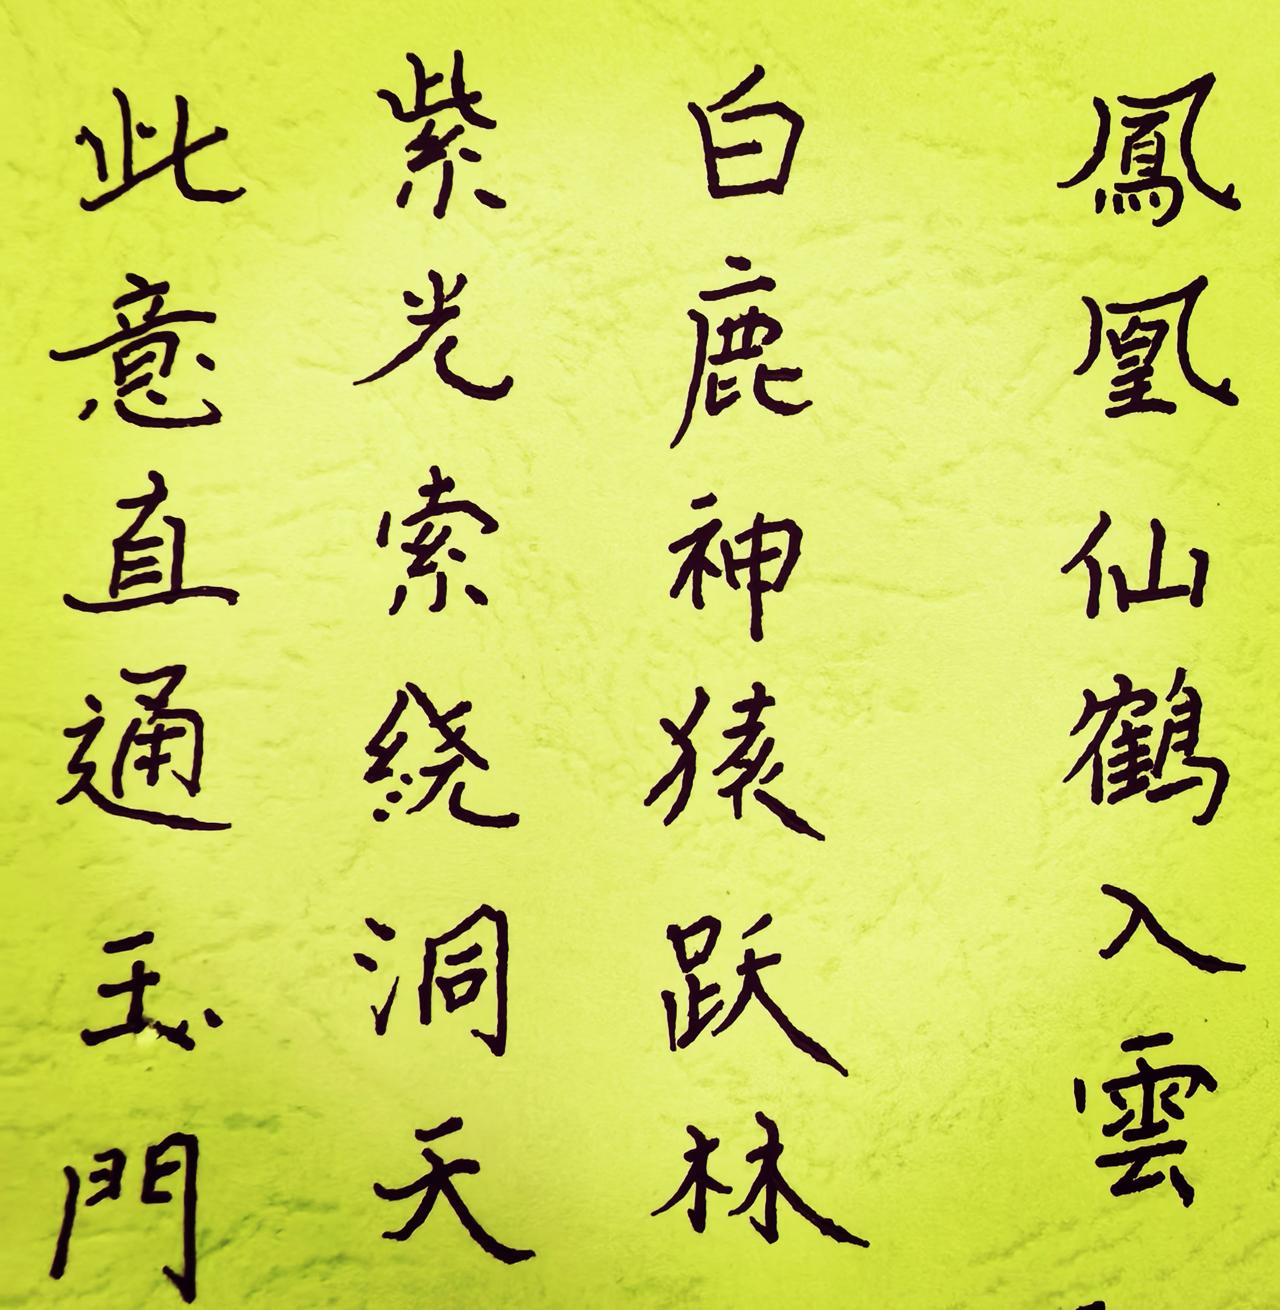 鳳凰仙鶴入雲
白鹿神猿跃林
紫光索绕洞天
此意直通玉門